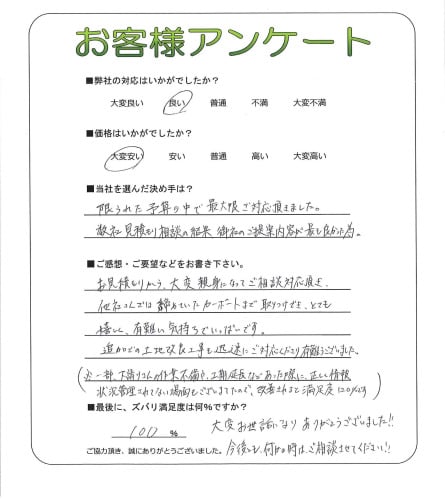 お客様アンケート
■弊社の対応はいかがでしたか？
大変良い 良い 普通 不満 大変不満
■価格はいかがでしたか？
大変安い 安い 普通 高い 大変高い
■当社を選んだ決め手は？
限られた予算の中で最大限ご対応頂きました。
数社見積もり相談の結果 御社のご提案内容が最も良かった為。
■ご感想・ご要望などをお書き下さい。
お見積もりから、大変親身になってご相談対応頂き、
他社さんでは諦めていたカーポートまで取りつけでき、とても
嬉しく、有難い気持ちでいっぱいです。
追加での土地改良工事も迅速にご対応くださり有難うございました。
※一部、下請けさんの作業不備や、工期延長などあった際に、正しい情報
状況管理されてない場面もございましたので、改善されると満足度120%です
■最後に、ズバリ満足度は何%ですか？
100 %
大変お世話になり ありがとうございました!!
ご協力頂き、誠にありがとうございました。
今後とも、何かの時は、ご相談させてください!!